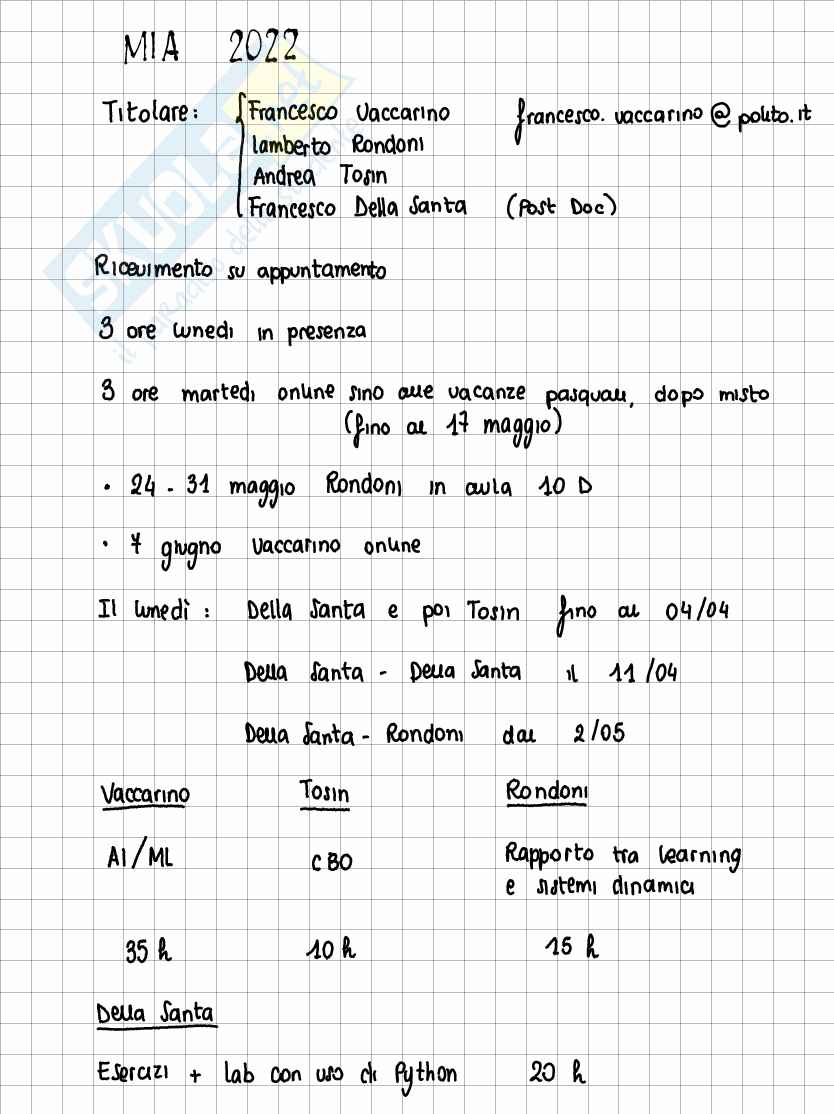 MIA 2022
Titolare: Francesco Vaccarino francesco.vaccarino@polito.it
Lamberto Rondoni
Andrea Tosin
Francesco Della Santa (Post Doc)
Ricevimento su appuntamento
3 ore lunedì in presenza
3 ore martedì online sino alle vacanze pasquali, dopo misto
(fino al 17 maggio)
• 24 - 31 maggio Rondoni in aula 10 D
• 7 giugno Vaccarino online
Il lunedì: Della Santa e poi Tosin fino al 04/04
Della Santa - Della Santa il 11/04
Della Santa - Rondoni dal 2/05
Vaccarino Tosin Rondoni
AI/ML CBO Rapporto tra learning
e sistemi dinamici
35 h 10 h 15 h
Della Santa
Esercizi + lab con uso di Python 20 h